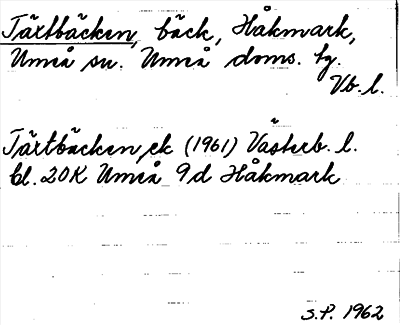 Täxtbäcken, bäck, Håkmark,
Umeå sn. Umeå doms. tg.
Vb. l.
Täxtbäcken, ek (1961) Västerb. l.
bl. 20K Umeå 9d Håkmark
S.P. 1962